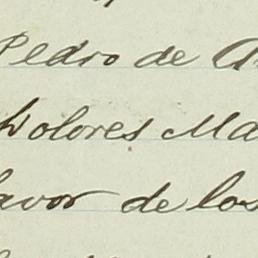 Pedro de A
Dolores Ma
favor de los